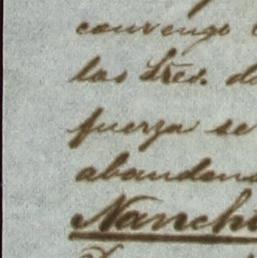 convengo
los Sres. de
fuerza se
abandon
Nanch